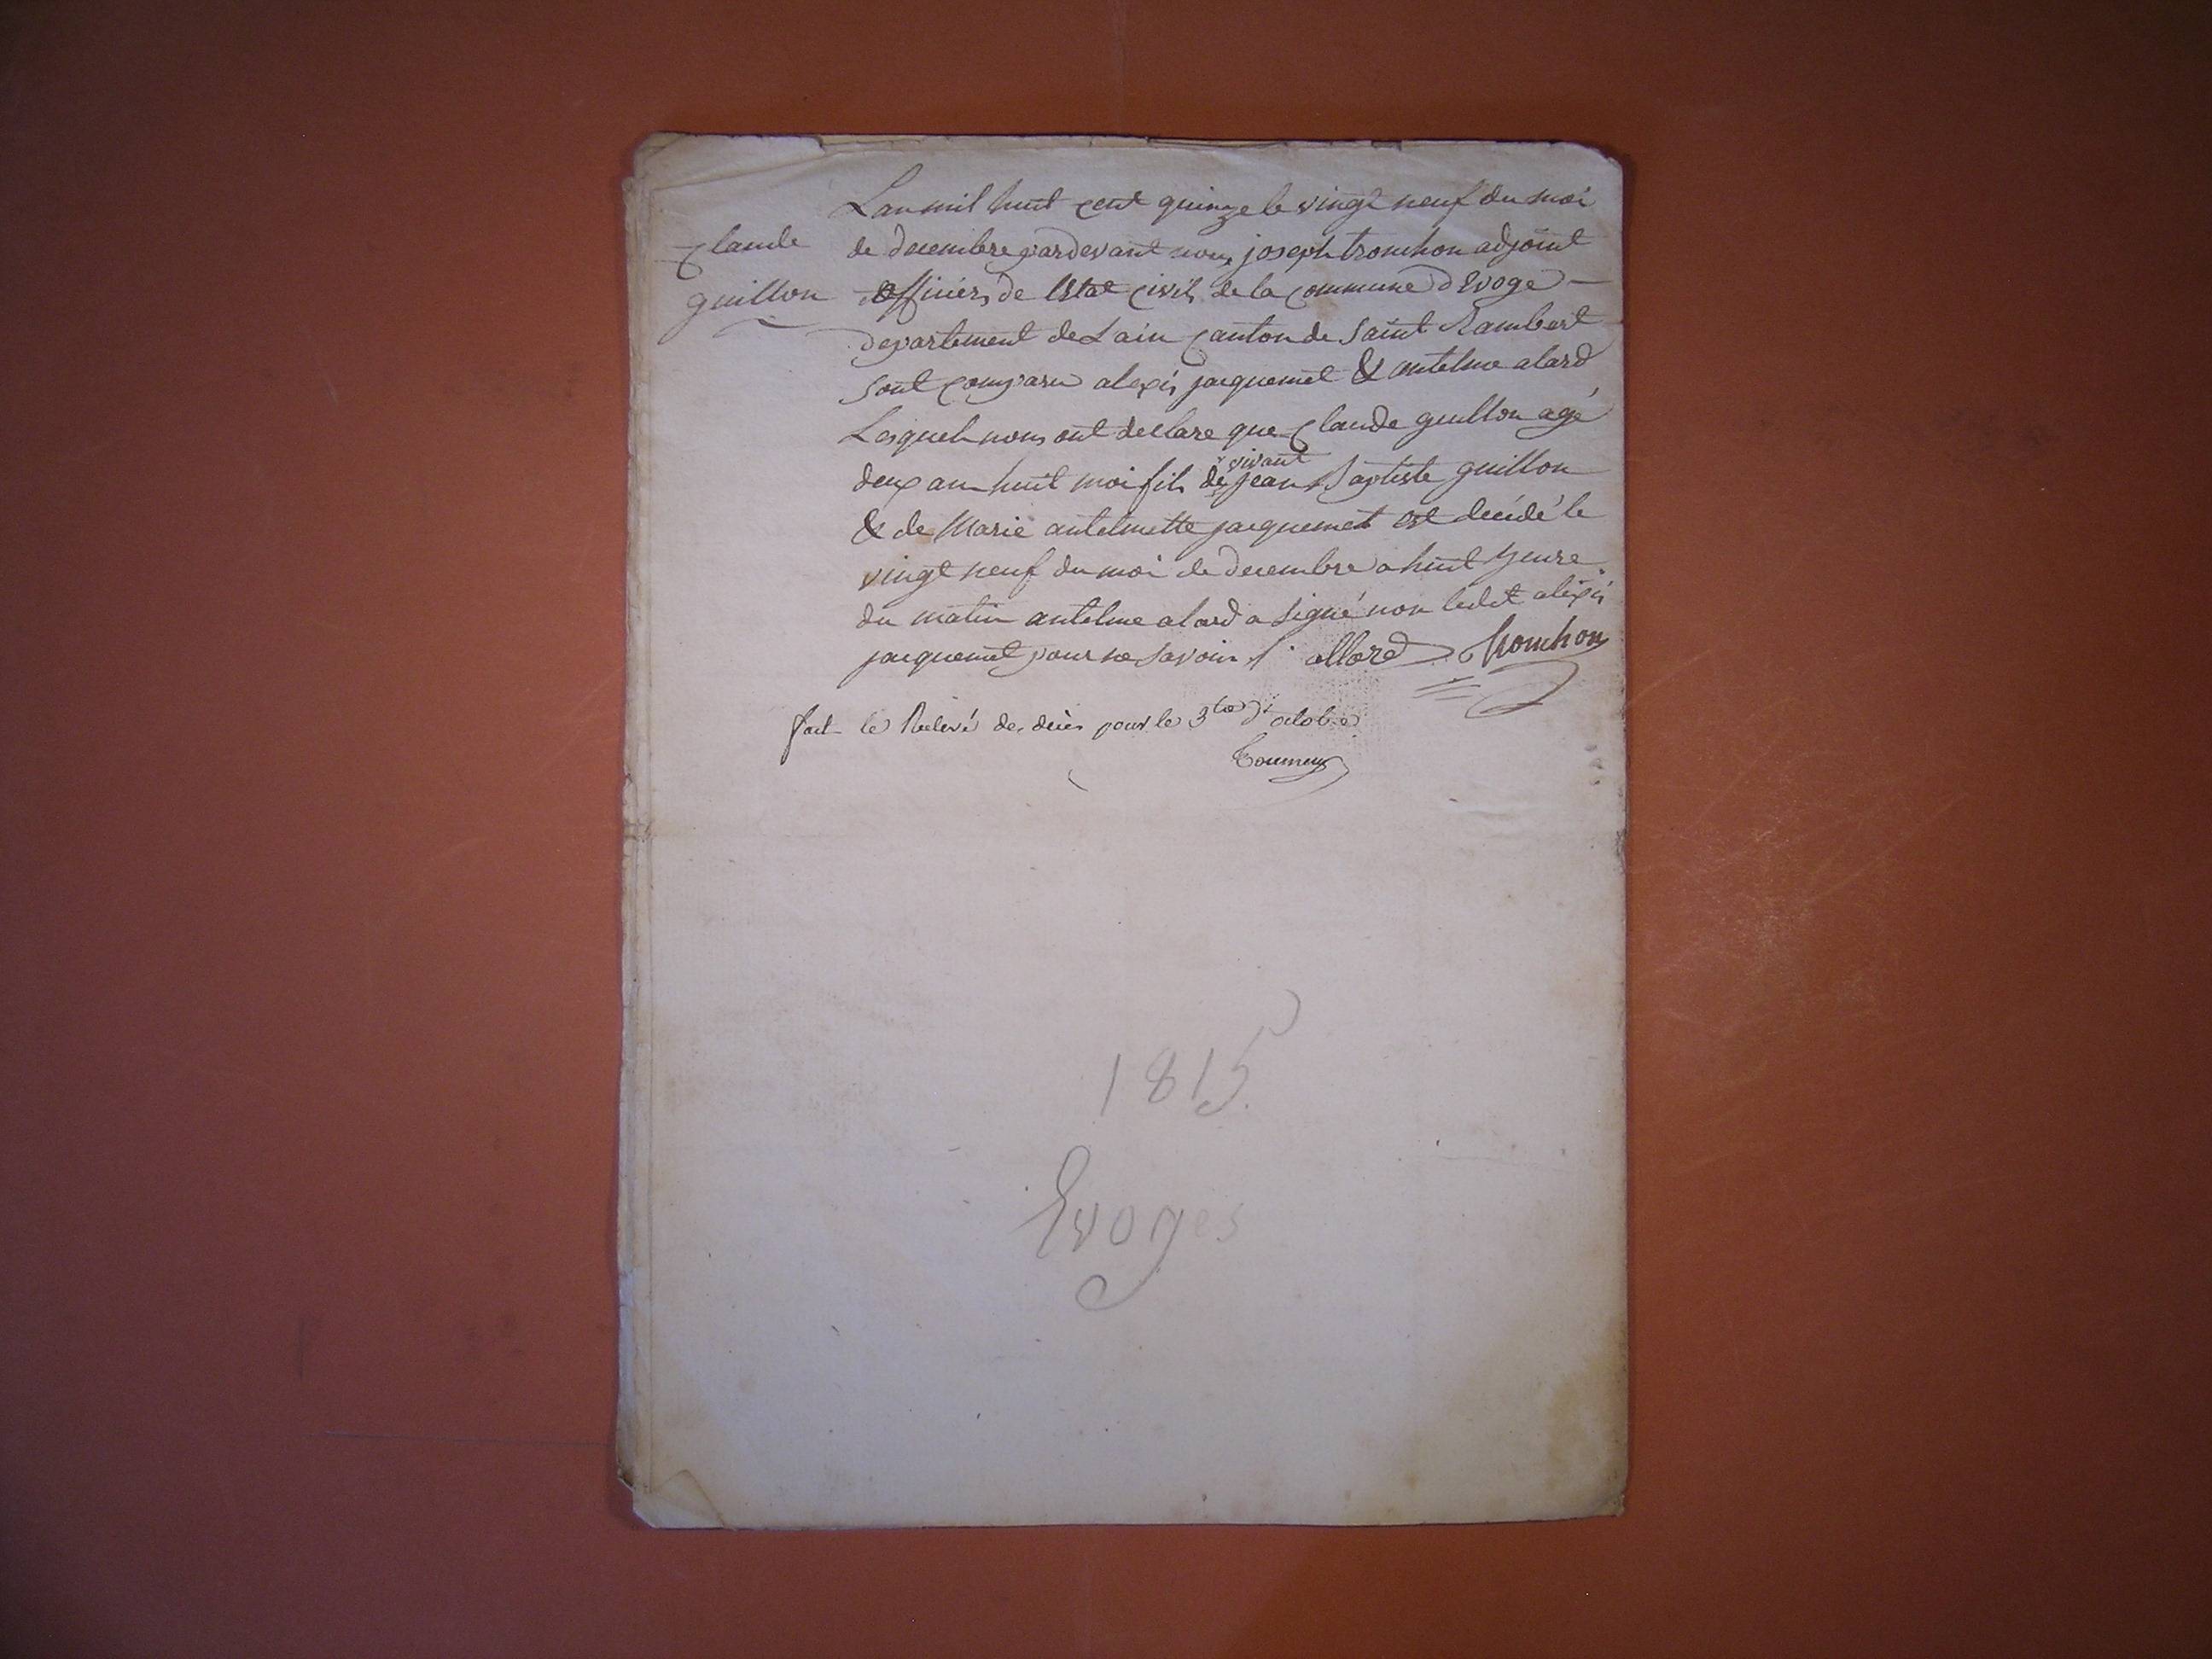 Lan mil huit cent quinze le vingt neuf du moi
Claude
guillon
de decembre pardevant nous joseph tronchon adjoint
officiers de lEtat civil de la commune dEvoge
departement de Lain canton de Saint Rambert
sont comparu alexis jacquemet & antelme alard
Lesquels nous ont declare que Claude guillon agé
deux an huit moi fils de vivant jean Baptiste guillon
& de Marie antelmette jacquemet est decidé le
vingt neuf du moi de decembre a huit heure
du matin antelme alard a signé non ledit alexis
jacquemet pour ne savoir allard tronchon
fait le Relevé des décès pour le 3 d'octobre
1815
Evoges